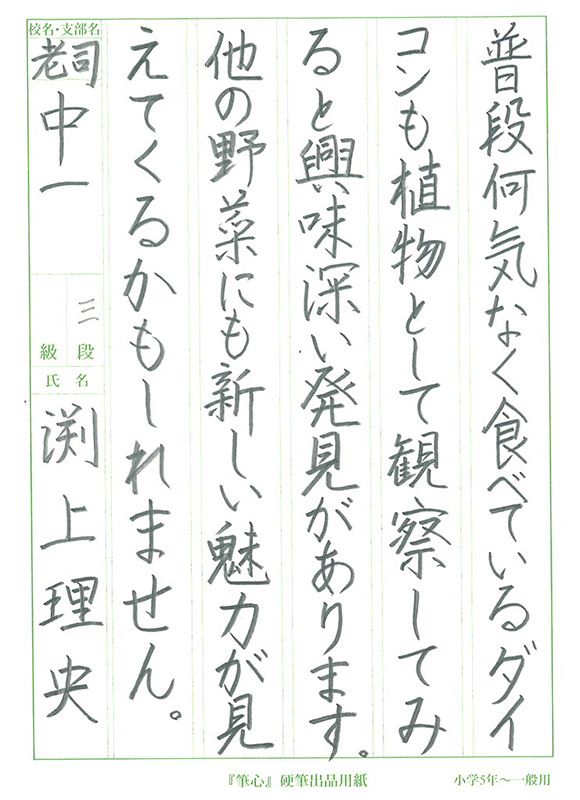 普段何気なく食べているダイ
コンも植物として観察してみ
ると興味深い発見があります。
他の野菜にも新しい魅力が見
えてくるかもしれません。
校名・支部名
老司
中一
三
段
級
氏名
渕上理央
『筆心』硬筆出品用紙
小学5年〜一般用